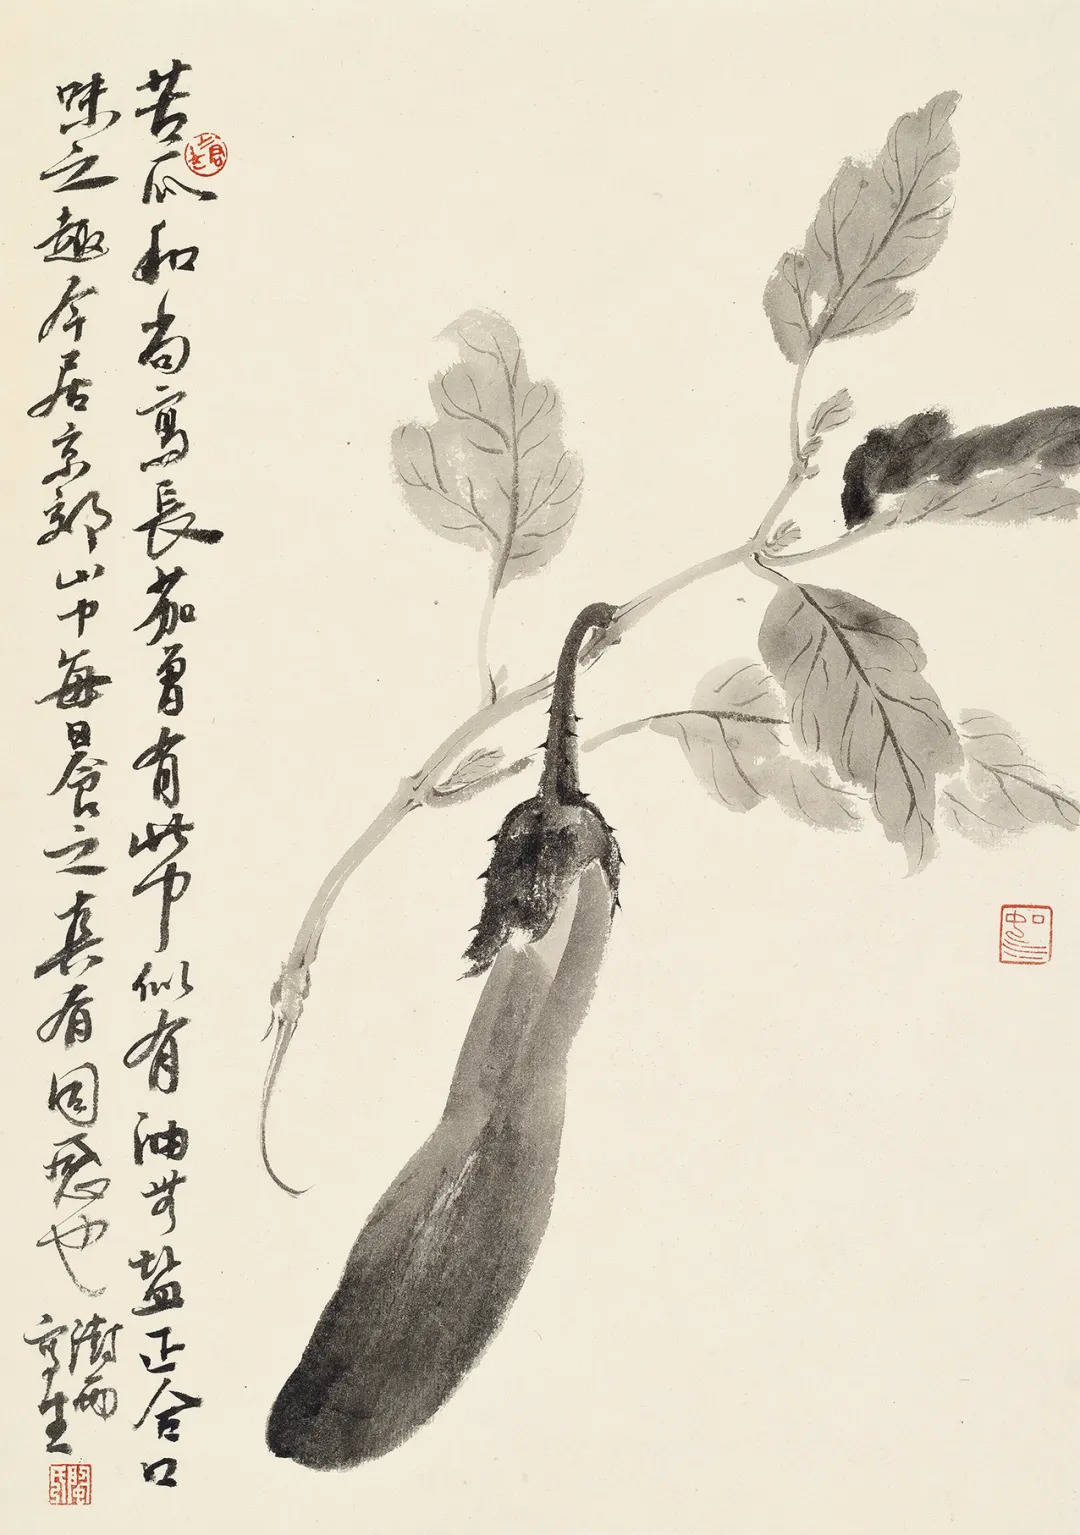 苦瓜和尚寫長茄曾有此中似有油無鹽正合口
味之趣今居京郊山中每日食之真有同感也
澍雨
寫生